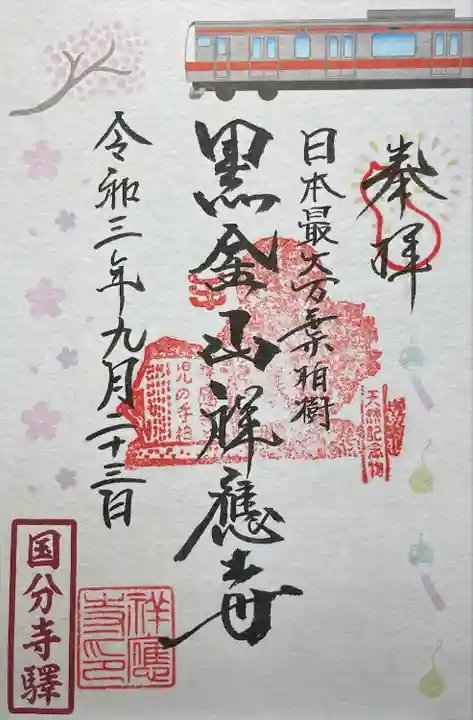 奉拝
日本最大万葉柏樹
黒金山祥應寺
令和三年九月二十三日
天然記念物
児の手柏
祥應寺印
国分寺驛